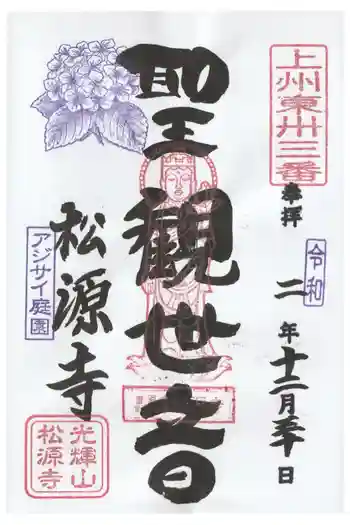 上州東卅三番
奉拝
令和二年十二月三十日
聖観世音
松源寺
アジサイ庭園
光輝山
松源寺